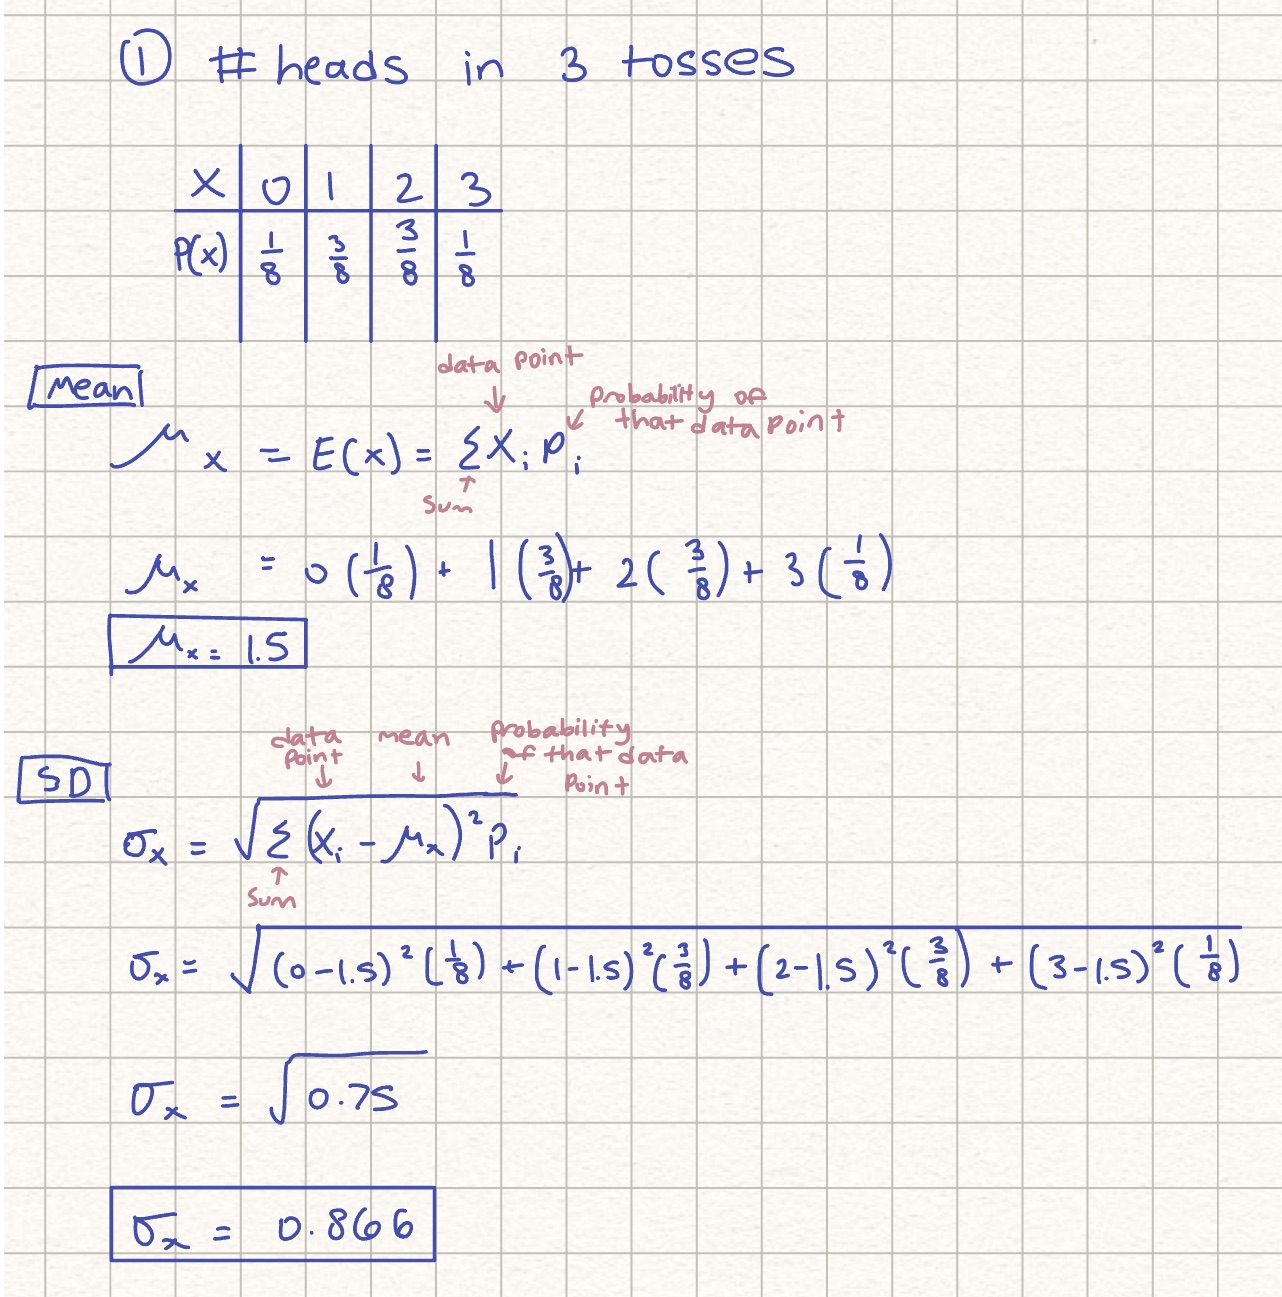 ① # heads in 3 tosses
X 0 1 2 3
P(x) 1/8 3/8 3/8 1/8
data point
Mean
probability of
that data point
μx = E(x) = ΣXiPi
sum
μx = 0(1/8) + 1(3/8) + 2(3/8) + 3(1/8)
μx = 1.5
data point
mean
probability of that data point
SD
σx = √Σ(Xi - μx)²Pi
sum
σx = √(0-1.5)²(1/8) + (1-1.5)²(3/8) + (2-1.5)²(3/8) + (3-1.5)²(1/8)
σx = √0.75
σx = 0.866